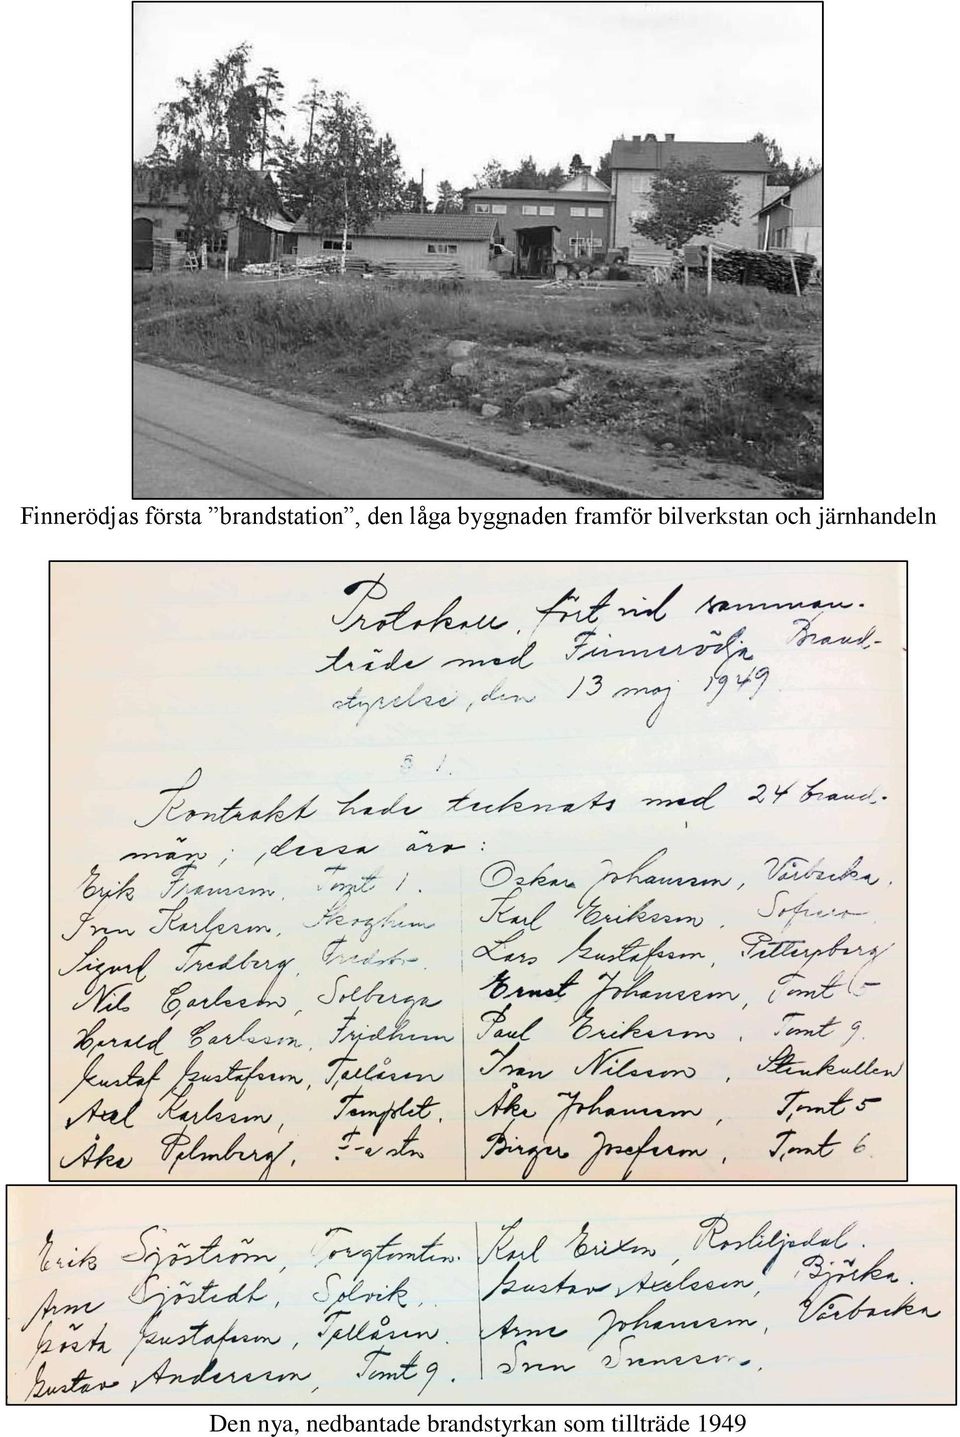 Finnerödjas första ”brandstation”, den låga byggnaden framför bilverkstan och järnhandeln
Protokoll, fört vid samman-
träde med Finnerödja Brand-
styrelse, den 13 maj 1949.
§ 1.
Kontrakt hade tecknats med 24 brand-
män; dessa äro:
Erik Fransson, Tomt 1.
Sven Karlsson, Skoghem
Sigurd Fredberg,
Nils Carlsson, Solberga
Harald Carlsson, Fridhem
Gustaf Gustafsson, Tallåsen
Axel Karlsson, Templet.
Åke Palmberg, F-a stn
Oskar Johansson, Vårbacka.
Karl Eriksson,
Lars Gustafsson, Pettersberg
Ernst Johansson, Tomt 15
Paul Eriksson, Tomt 9.
Ivan Nilsson, Stenkullen
Åke Johansson, Tomt 5
Birger Josefsson, Tomt 6.
Erik Sjöström, Torgtomten.
Arne Sjöstedt, Solvik.
Gösta Gustafsson, Tallåsen.
Gustav Andersson, Tomt 9.
Karl Erixon, Rosliljedal.
Gustav Axelsson, Björka.
Arne Johansson, Vårbacka
Sven Svensson.
Den nya, nedbantade brandstyrkan som tillträde 1949